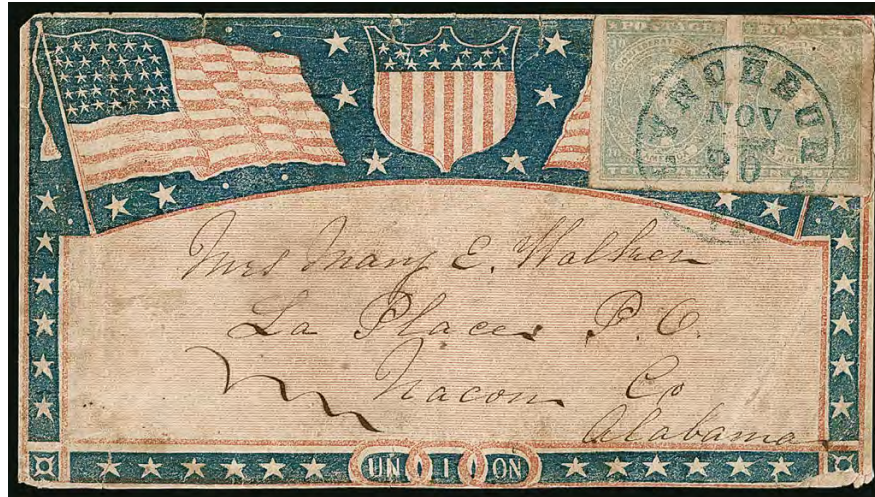 POSTAGE
LYNCHBURG
NOV
20
Mrs Mary E. Walker
La Place P. O.
Macon Co
Alabama
UN I ON